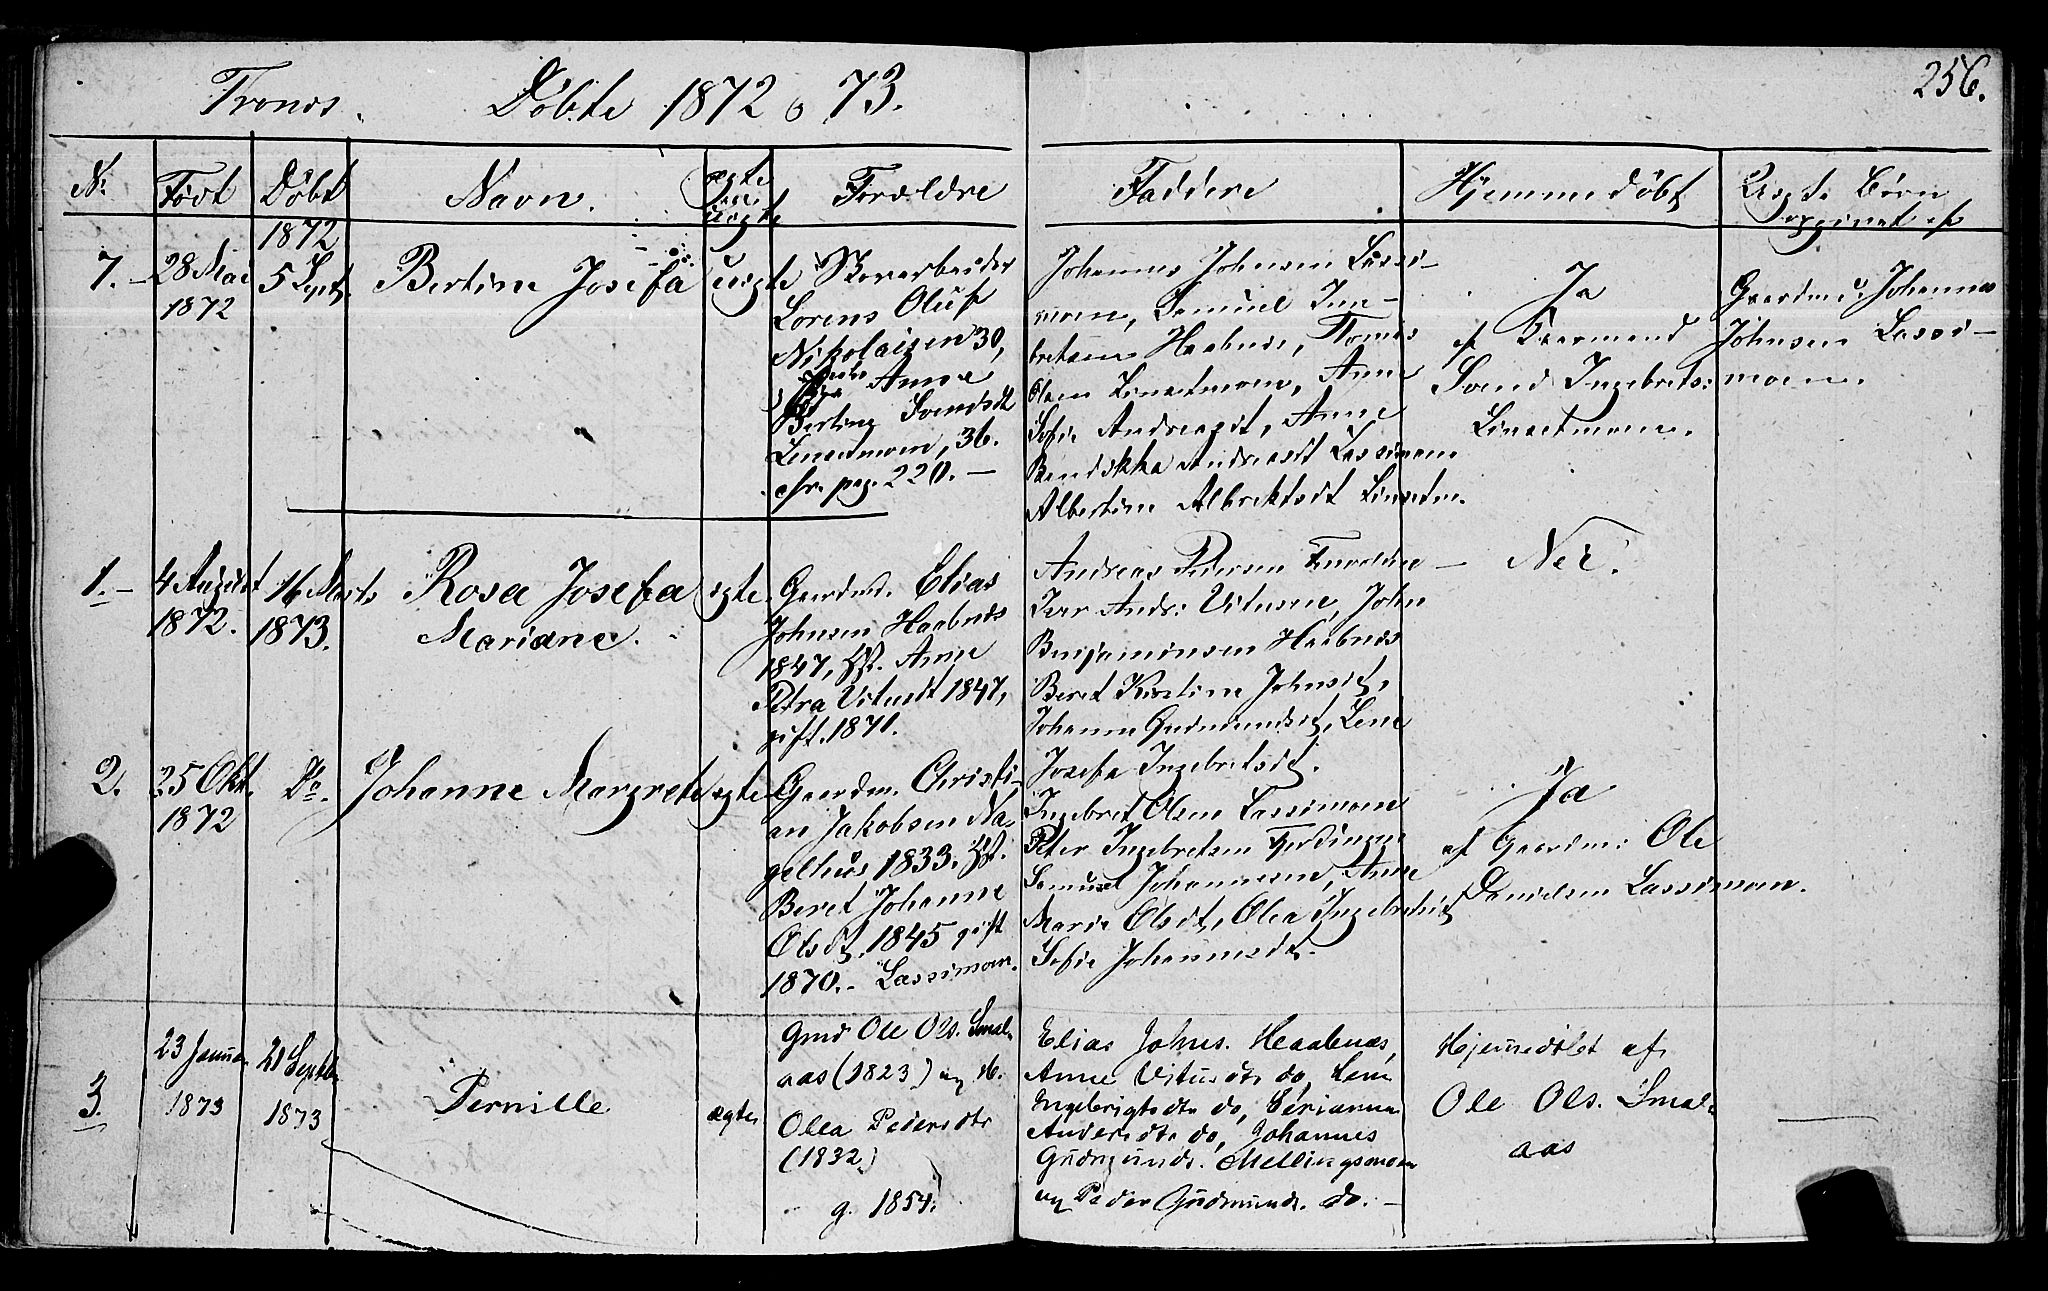 Trones. Döbte 1872 o 73.
256.
No Födt Döbt Navn. ægte Forældre
uægte
Faddere Hjemmedöbt Uægte Börn
1872
7. 28 Mai 1872
5 Sept.
Bertine Josefa
uægte
Lorens Oluf
Nikolaisen 30,
Anne
Berting Svendsdt
36.
cfr. pag. 220. —
Johannes Johnsen Lassi-
moen, Samuel Inn-
bretsen Haabnes, Tomas
Olsen Linsetmoen, Anne
Sofie Andreasdt, Anne
Bendikka Andreasdt Lassimoen
Albertine Albrektsdt Linsetm.
Ja
af Gaarmand
Svend Ingebrets:
Linsetmoen.
Gaardmd. Johannes
Johnsen Lassi-
moen.
1. 4 August
1872.
16 Marts
1873.
Rosa Josefa
Mariane.
ægte
Gaardmd. Elias
Johnsen Haabnes
1847, Hst. Anne
Petra Vitusdt 1847,
gift. 1871.
Andreas Pedersen
Iver Andr: Vitusne, John
Benjaminsen Haabnes
Beret Kirstine Johnsdt,
Johanna Gudmundsdt, Lene
Josefa Ingebretsdt.
Nei.
2. 25 Okt.
1872
Do.
Johanne Margrete
ægte
Gaardm. Christi-
an Jakobsen Na-
gelhus 1833. Hst.
Beret Johanne
Olsdt. 1845 gift
1870. - Lassimoen.
Ingebret Olsen Lassimoen
Peter Ingebretsen
Samuel Johannesen, Anne
Marie Olsdt, Olea Ingebretsdt
Sofie Johannesdt.
Ja
af Gaardm: Ole
Danielsen Lassimoen.
3. 23 Janua.
1873
21 Septbr
1873
Pernille
ægte
Gmd Ole Ols. Smal-
aas (1823) og H.
Olea Pedersdtr
(1832)
g. 1854.
Elias Johns. Haabnæs,
Anne Vitusdtr do, Lene
Ingebrigtsdtr do, Serianna
Andersdtr do, Johannes
Gudmunds. Mellingsmoen
og Peder Gudmunds. do. —
Hjemmedöbt af
Ole Ols. Smal-
aas